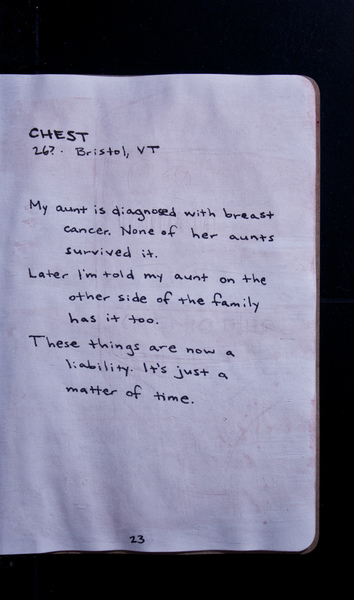 CHEST
26?. Bristol, VT
My aunt is diagnosed with breast
cancer. None of her aunts
survived it.
Later I'm told my aunt on the
other side of the family
has it too.
These things are now a
liability. It's just a
matter of time.
23